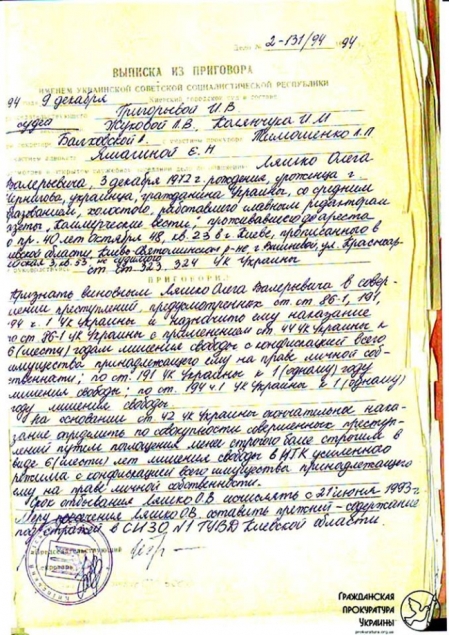 Дело № 2-131/94 94
ВЫПИСКА ИЗ ПРИГОВОРА
ИМЕНЕМ УКРАИНСКОЙ СОВЕТСКОЙ СОЦИАЛИСТИЧЕСКОЙ РЕСПУБЛИКИ
94 9 декабря Киевский городской суд в составе
Григорьевой И.В
судей Жуковой Л.В, Коленчука И.М
Балховской прокурора Тимошенко Л.П
Ямшиной Е.Н
Ляшко Олега
Валерьевича, 3 декабря 1972 рождения, уроженца г.
Чернигова, украинца, гражданина Украины, со средним
образованием, холостого, работавшего главным редактором
газеты "Коммерческие вести", проживавшего до ареста
по пр. 40 лет Октября 48, кв. 23 в г Киеве, прописанного в
Киевской области, Киево-Святошинском р-не, г. Вишневый, ул.
не судимого
ст. ст. 323, 324 УК Украины
ПРИГОВОРИЛ
Признать виновным Ляшко Олега Валерьевича в совер-
шении преступлений, предусмотренных ст. ст 86-1, 191,
194 ч. 1 УК Украины и назначить ему наказание
по ст. 86-1 УК Украины с применением ст 44 УК Украины к
6 (шести) годам лишения свободы с конфискацией всего
имущества принадлежащего ему на праве личной соб-
ственности; по ст. 191 УК Украины к 1 (одному) году
лишения свободы; по ст. 194 ч. 1 УК Украины к 1 (одному)
году лишения свободы.
На основании ст 42 УК Украины окончательное нака-
зание определить по совокупности совершенных преступ-
лений путем поглощения менее строгого более строгим в
виде 6 (шести) лет лишения свободы в ИТК усиленного
режима с конфискацией всего имущества принадлежащего
ему на праве личной собственности.
Срок отбывания Ляшко О.В исчислять с 21 июня 1993 г
Меру пресечения Ляшко О.В. оставить прежней - содержание
под стражей в СИЗО №1 ГУВД Киевской области.
Председательствующий
ГРАЖДАНСКАЯ
ПРОКУРАТУРА
УКРАИНЫ
prokuratura.org.ua